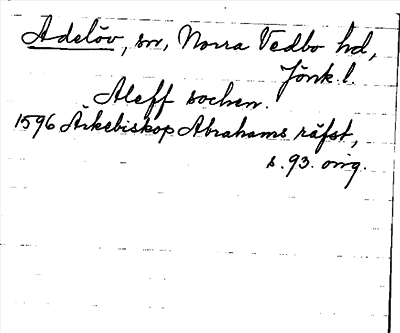 Adelöv, sn, Norra Vedbo hd,
Jönk.l.
Aleff sochen.
1596 Ärkebiskop Abrahams räfst,
s. 93. orig.